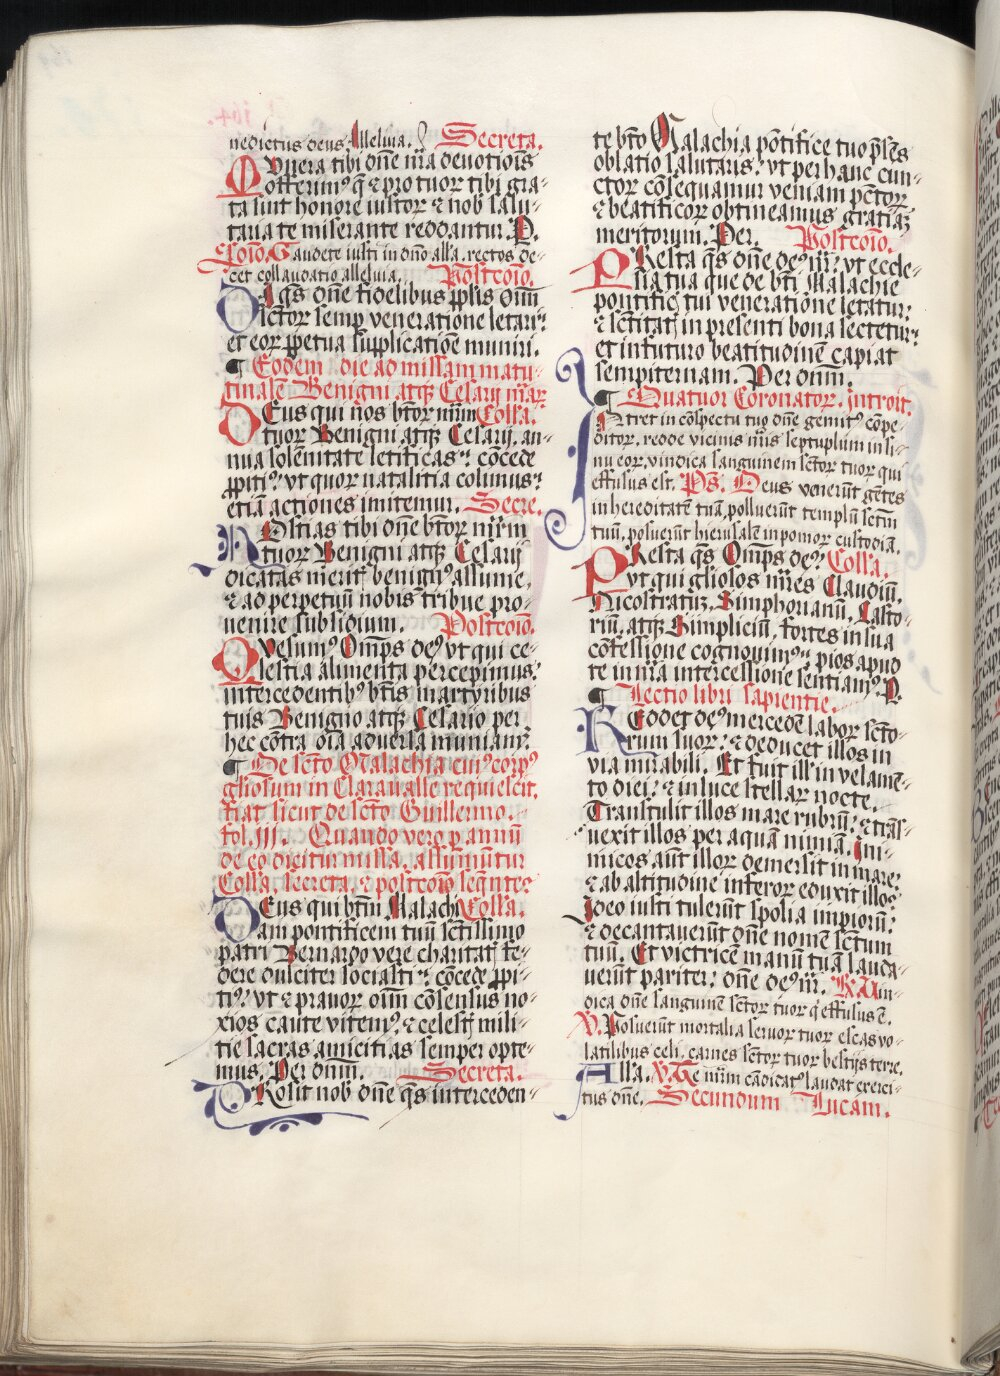 nedictus deus. Alleluia. Secreta.
MUnera tibi dñe nr̃a deuotiõis
offerimus q̃ ⁊ pro tuoꝝ tibi gra-
ta sint honore iustoꝝ ⁊ nob̃ salu-
taria te miserante reddantur. P.
Cõio. Gaudete iusti in dño alla. rectos de-
cet collaudatio alleluia. Postcõio.
DA qs̃ dñe fidelibus pplis oĩm
sctõꝝ semp veneratione letari:
et eoꝝ ppetua supplicatiõe muniri.
¶ Eodem die ad missam matu-
tinalẽ Benigni atqꝫ Cesarij mar̃
DEus qui nos btõꝝ mr̃m Colla.
tuoꝝ Benigni atqꝫ Cesarij. an-
nua solẽnitate letificas: cõcede
ppiti⁹: vt quoꝝ natalitia colimus:
etiã actiones imitemur. Secre.
HOstias tibi dñe btõꝝ mr̃m
tuoꝝ Benigni atqꝫ Cesarij
dicatas merit̃ benign⁹ assume,
⁊ ad perpetuũ nobis tribue pro-
uenire subsidium. Postcõio.
QVesum⁹ Omps̃ de⁹ vt qui ce-
lestia alimenta percepimus:
intercedentib⁹ btĩs martyribus
tuis Benigno atqꝫ Cesario per
hec cõtra oĩa aduersa muniam̃.
¶ De sctõ Malachia cui⁹ corp⁹
gliosum in Claraualle requiescit.
fiat sicut de sctõ Guillermo.
fol. iij. Quando vero p annũ
de eo dicitur missa. assumũtur
Colla, secreta, ⁊ postcõio seq̃ntes
DEus qui btm̃ Malachi Colla.
am pontificem tuũ sctĩssimo
patri Bernardo vere charitat̃ fe-
dere dulciter sociasti: cõcede ppi-
ti⁹: vt ⁊ prauoꝝ oĩm cõsensus no-
xios caute vitem⁹, ⁊ celest̃ mili-
tie sacras amicitias semper opte-
mus. Per dñm. Secreta.
PRosit nob̃ dñe qs̃ interceden-
te btõ Malachia põtifice tuo p̃ses
oblatio salutaris: vt per hanc cun-
ctoꝝ cõsequamur veniam pctõꝝ.
⁊ beatificoꝝ obtineamus gratiaꝫ
meritorum. Per. Postcõio.
PResta qs̃ dñe de⁹ nr̃: vt eccle-
sia tua que de btĩ Malachie
pontific̃ tui veneratiõne letatur:
⁊ sctĩtat̃ in presenti bona sectetur:
et in futuro beatitudinẽ capiat
sempiternam. Per dñm.
¶ Quatuor Coronatoꝝ. introit.
INtret in cõspectu tuo dñe gemit⁹ cõpe-
ditoꝝ. redde vicinis nr̃is septuplum in si-
nu eoꝝ, vindica sanguinem sctõꝝ tuoꝝ qui
effusus est. Ps̃. Deus venerũt gẽtes
in hereditatẽ tuã, polluerũt templũ sctm̃
tuũ, posuerũt hierusalẽ in pomoꝝ custodiã.
PResta qs̃ Omps̃ de⁹: Colla.
vt qui gliosos mr̃es Claudiũ.
Nicostratũ, Simphorianũ, Casto-
riũ, atqꝫ Simpliciũ, fortes in sua
cõfessione cognouim⁹: pios apud
te in nr̃a intercessione sentiam⁹. P.
¶ Lectio libri sapientie.
REddet de⁹ mercedẽ laboꝝ sctõ-
rum suoꝝ: ⁊ deducet illos in
via mirabili. Et fuit ill̃ in velamẽ-
to diei: ⁊ in luce stellaꝝ nocte.
Transtulit illos mare rubrũ: ⁊ trãs-
uexit illos per aquam nimiã. Ini-
micos aũt illoꝝ demersit in mare:
⁊ ab altitudine inferoꝝ eduxit illos.
Ideo iusti tulerũt spolia impioꝝ:
⁊ decantauerũt dñe nomẽ sctũm
tuũ. Et victricẽ manũ tuã lauda-
uerũt pariter: dñe de⁹ nr̃. R̃. Vin-
dica dñe sanguinẽ sctõꝝ tuoꝝ q̃ effusus ẽ.
V̾. Posuerũt mortalia seruoꝝ tuoꝝ escas vo-
latilibus celi, carnes sctõꝝ tuoꝝ bestijs terre.
Alla. V̾. Te mr̃m cãdidat⁹ laudat exerci-
tus dñe. Secundum Lucam.